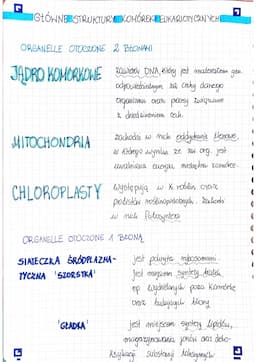 GŁÓWNE STRUKTURY KOMÓREK EUKARIOTYCZNYCH
ORGANELLE OTOCZONE 2 BŁONAMI
JĄDRO KOMÓRKOWE
zawiera DNA, który jest materiałem gen.
odpowiedzialnym za cechy danego
organizmu oraz procesy związane
z dziedziczeniem cech.
MITOCHONDRIA
zachodzi w nich oddychanie tlenowe,
w którego wyniku ze zw. org. jest
uwalniana energia niezbędna komórce.
CHLOROPLASTY
Występują w K. roślin oraz
protistów roślinopodobnych. Zachodzi
w nich fotosynteza
ORGANELLE OTOCZONE 1 BŁONĄ
SIATECZKA ŚRÓDPLAZMA-
TYCZNA 'SZORSTKA'
jest pokryta rybosomami.
Jest miejscem syntezy białek
np. wydzielanych poza komórkę
oraz budujących błony
'GŁADKA'
jest miejscem syntezy lipidów,
magazynowania jonów oraz deto-
ksykacji substancji toksycznych